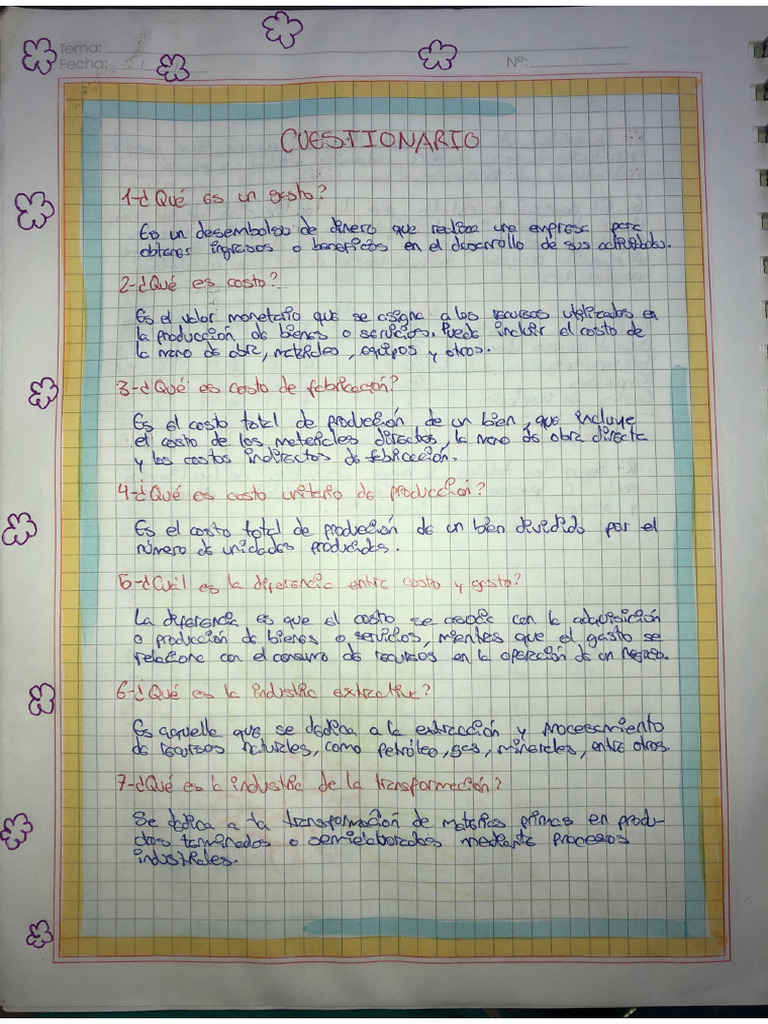 Tema:
Fecha:
Nº:
CUESTIONARIO
1-¿Qué es un gasto?
Es un desembolso de dinero que realiza una empresa para
obtener ingresos o beneficios en el desarrollo de sus actividades.
2-¿Qué es costo?
Es el valor monetario que se asigna a los recursos utilizados en
la producción de bienes o servicios. Puede incluir el costo de
la mano de obra, materiales, equipos y otros.
3-¿Qué es costo de fabricación?
Es el costo total de producción de un bien, que incluye
el costo de los materiales directos, la mano de obra directa
y los costos indirectos de fabricación.
4-¿Qué es costo unitario de producción?
Es el costo total de producción de un bien devidido por el
número de unidades producidas.
5-¿Cuál es la diferencia entre costo y gasto?
La diferencia es que el costo se asocia con la adquisición
o producción de bienes o servicios, mientras que el gasto se
relaciona con el consumo de recursos en la operación de un negocio.
6-¿Qué es la industria extractiva?
Es aquella que se dedica a la extracción y procesamiento
de recursos naturales, como petróleo, gas, minerales, entre otros.
7-¿Qué es la industria de la transformación?
Se dedica a la transformación de materias primas en produ-
ctos terminados o semielaborados mediante procesos
industriales.